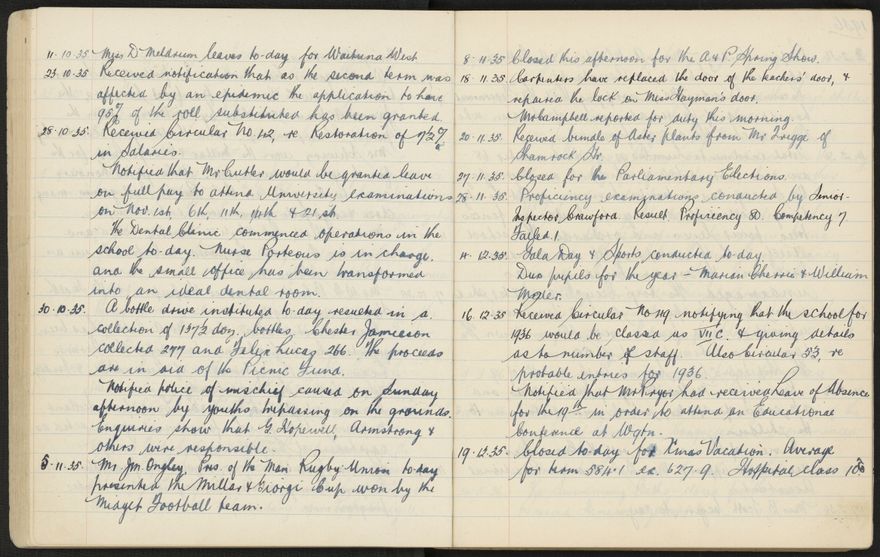 11.10.35 Miss D Meldrum leaves to-day for Waituna West
23.10.35 Received notification that as the second term was
affected by an epidemic the application to have
95% of the roll substituted has been granted.
28.10.35. Received Circular No. 42, re Restoration of 7½%
in Salaries.
Notified that Mr Cutler would be granted leave
on full pay to attend University examinations
on Nov. 1st, 6th, 11th, 14th & 21st.
The Dental Clinic commenced operations in the
school to-day. Nurse Porteous is in charge,
and the small office has been transformed
into an ideal dental room.
30.10.35. A bottle drive instituted to-day resulted in a
collection of 137½ doz. bottles. Chester Jamieson
collected 277 and Felix Lucas 266. The proceeds
are in aid of the Picnic Fund.
Notified police of mischief caused on Sunday
afternoon by youths trespassing on the grounds.
Enquiries show that G. Hopewell, Armstrong &
others were responsible.
5.11.35. Mr Jm. Ongley, Pres. of the Man. Rugby Union to-day
presented the Millar & Giorgi Cup won by the
Midget Football team.
8.11.35 Closed this afternoon for the A & P. Spring Show.
18.11.35. Carpenters have replaced the door of the teachers' door, &
repaired the lock on Miss Hayman's door.
Mr Campbell reported for duty this morning.
20.11.35. Received bundle of Aster plants from Mr Frigge of
Shamrock St.
27.11.35. Closed for the Parliamentary Elections.
28.11.35. Proficiency examinations conducted by Senior-
Inspector Crawford. Result Proficiency 80. Competency 7
Failed 1.
14.12.35. Gala Day & Sports conducted to-day.
Dux pupils for the year — Marie Cherrie & William
16.12.35 Received Circular No 119 notifying that the school for
1936 would be classed as VII C. & giving details
as to number of staff. Also Circular 53 re
probable entries for 1936.
Notified that Mr Pryor had received Leave of Absence
for the 19th in order to attend an Educational
Conference at Wgtn.
19.12.35. Closed to-day for Xmas Vacation. Average
for term 584.1 ex. 627.9. Hospital class